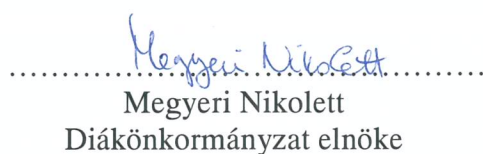 Megyeri Nikolett
Megyeri Nikolett
Diákönkormányzat elnöke